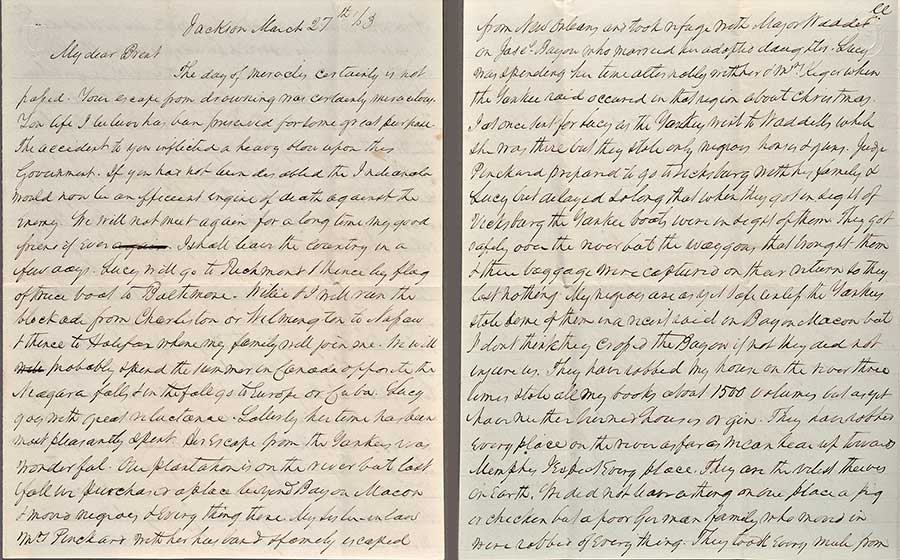 Jackson March 27th/63
My dear Brent
The day of miracles certainly is not
passed. Your escape from drowning was certainly miraculous.
Your life I believe has been preserved for some great purpose.
The accident to you inflicted a heavy blow upon this
Government. If you had not been disabled the Indianola
would now be an efficient engine of death against the
Enemy. We will not meet again for a long time my good
friend if Ever again. I shall leave the Country in a
few days. Lucy will go to Richmond & thence by flag
of truce boat to Baltimore. Willie & I will run the
blockade from Charleston or Wilmington to Nassau
& thence to Halifax where my family will join me. We will
probably spend the summer in Canada opposite the
Niagara falls & in the fall go to Europe or Cuba. Lucy
goes with great reluctance. Latterly her time has been
most pleasantly spent. Her Escape from the Yankees was
wonderful. Our plantation is on the river but last
fall we purchased a place beyond Bayou Macon
& moved negroes & Every thing there. My sister-in-law
Mrs Pinckard with her husband & family escaped
from New Orleans and took refuge with Major Waddell
on Bayou who married her adopted daughter. Lucy
was spending her time alternately with her & Mrs when
the Yankee raid occured in that region about Christmas.
I at once sent for Lucy as the Yankeys went to Waddells while
she was there but they stole only negroes horses & guns. Judge
Pinckard prepared to go to Vicksburg with his family &
Lucy but delayed so long that when they got in sight of
Vicksburg the Yankee boats were in sight of them. They got
safely over the river but the waggons that brought them
& their baggage were captured on their return so they
lost nothing. My negroes are as yet safe unless the Yankeys
stole some of them in a recent raid on Bayou Macon but
I dont think they crossed the Bayou if not they did not
injure us. They have robbed my house on the river three
times stole all my books about 1500 volumes but as yet
have neither burned houses or gin. They have robbed
Every place on the river as far as we can hear up towards
Memphis I Expect Every place. They are the vilest thieves
on Earth. We did not leave a thing on our place a pig
or chicken but a poor German family who moved in
were robbed of Everything. They took Every mule from